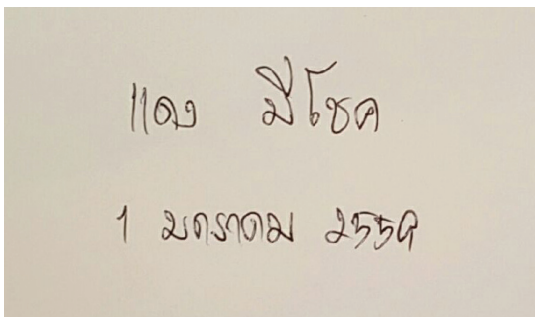 แดง มีโชค
1 มกราคม 2559